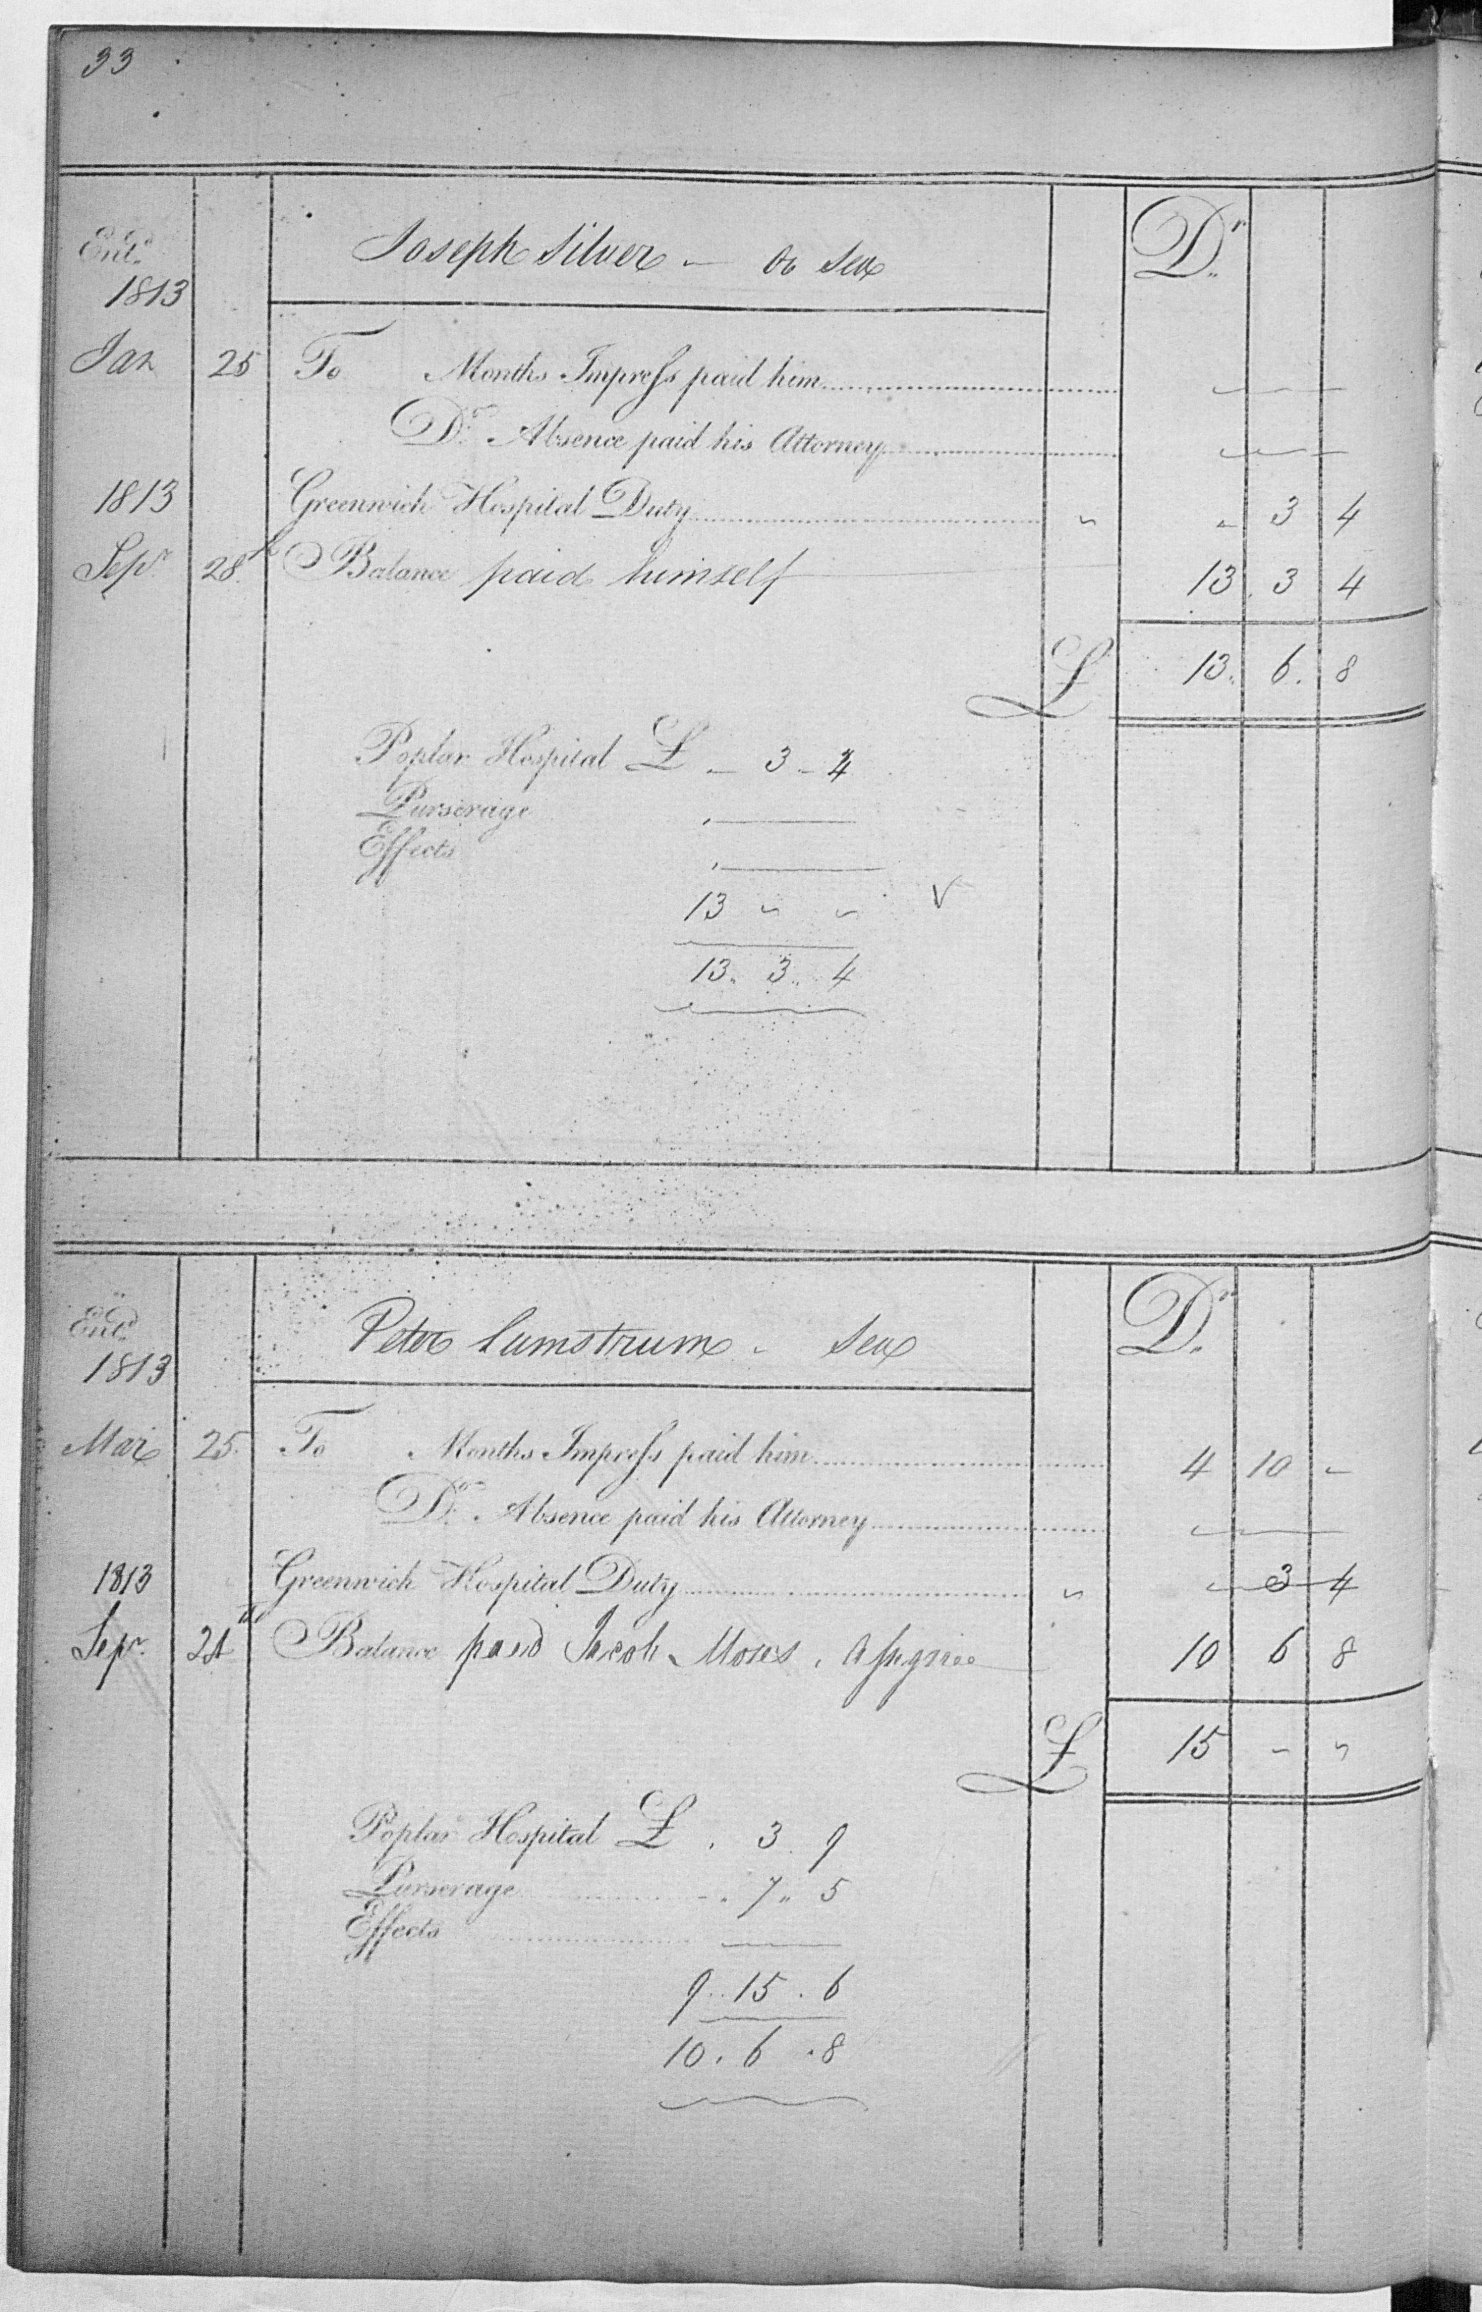 33
Ent.d
1813
Joseph Silver - Or Sea Dr.
Jan 25 To Months Impress paid him
Do. Absence paid his Attorney
1813 Greenwich Hospital Duty " " 3 4
Sepr 28th Balance paid himself 13 3 4
£ 13 .. 6 . 8
Poplar Hospital £ - 3 - 4
Purserage
Effects
13 " "
13 .. 3 .. 4
Ent.d
1813
Peter Lumstrum - Sea Dr.
Mar 25 To Months Impress paid him 4 10 -
Do. Absence paid his Attorney
1813 Greenwich Hospital Duty " 3 4
Sepr. Balance paid Jacob Moses, Assignee 10 6 8
£ 15 - "
Poplar Hospital £ . 3 . 9
Purserage - .. 7 .. 5
Effects
9 .. 15 . 6
10 . 6 . 8